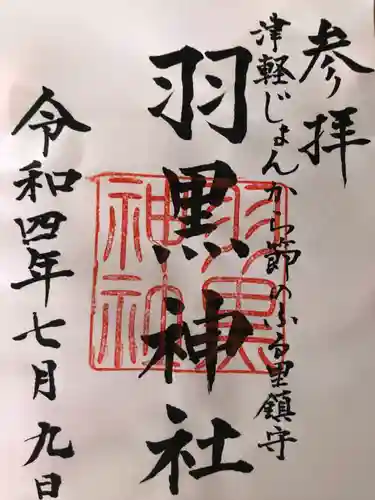 参拝
津軽じょんから節のふる里鎮守
羽黒神社
羽黒神社
令和四年七月九日